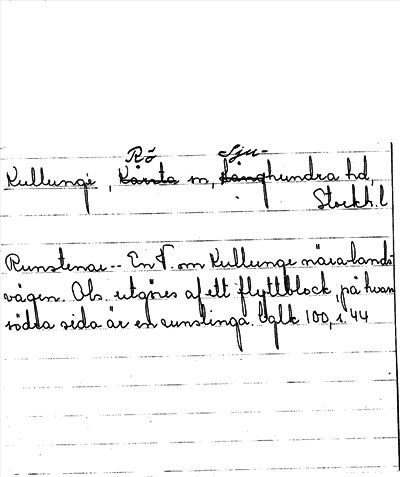 Rö Sju-
Kullunge, Kårsta sn, Långhundra hd,
Stockh. l
Runstenar -- En V. om Kullunge nära lands-
vägen. Obs. utgöres af ett flyttblock, på hvars
södra sida är en runslinga. 100, s. 44